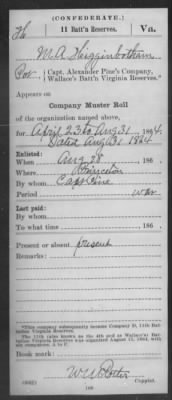 (CONFEDERATE.)
H 11 Batt'n Reserves. Va.
M. A. Higginbotham
Cor, Capt. Alexander Pine's Company,
Wallace's Batt'n Virginia Reserves.*
Appears on
Company Muster Roll
of the organization named above,
for April 23 to Aug 31, 1864.
Dated Aug 31 1864
Enlisted:
When Aug 28, 186 .
Where Princeton
By whom Capt Pine
Period War
Last paid:
By whom
To what time , 186 .
Present or absent present
Remarks:
*This company subsequently became Company D, 11th Battalion Virginia Reserves.
The 11th (also known as the 4th and as Wallace's) Battalion Virginia Reserves was organized August 13, 1864, with six companies, A to F.
Book mark:
(662)
Copyist.